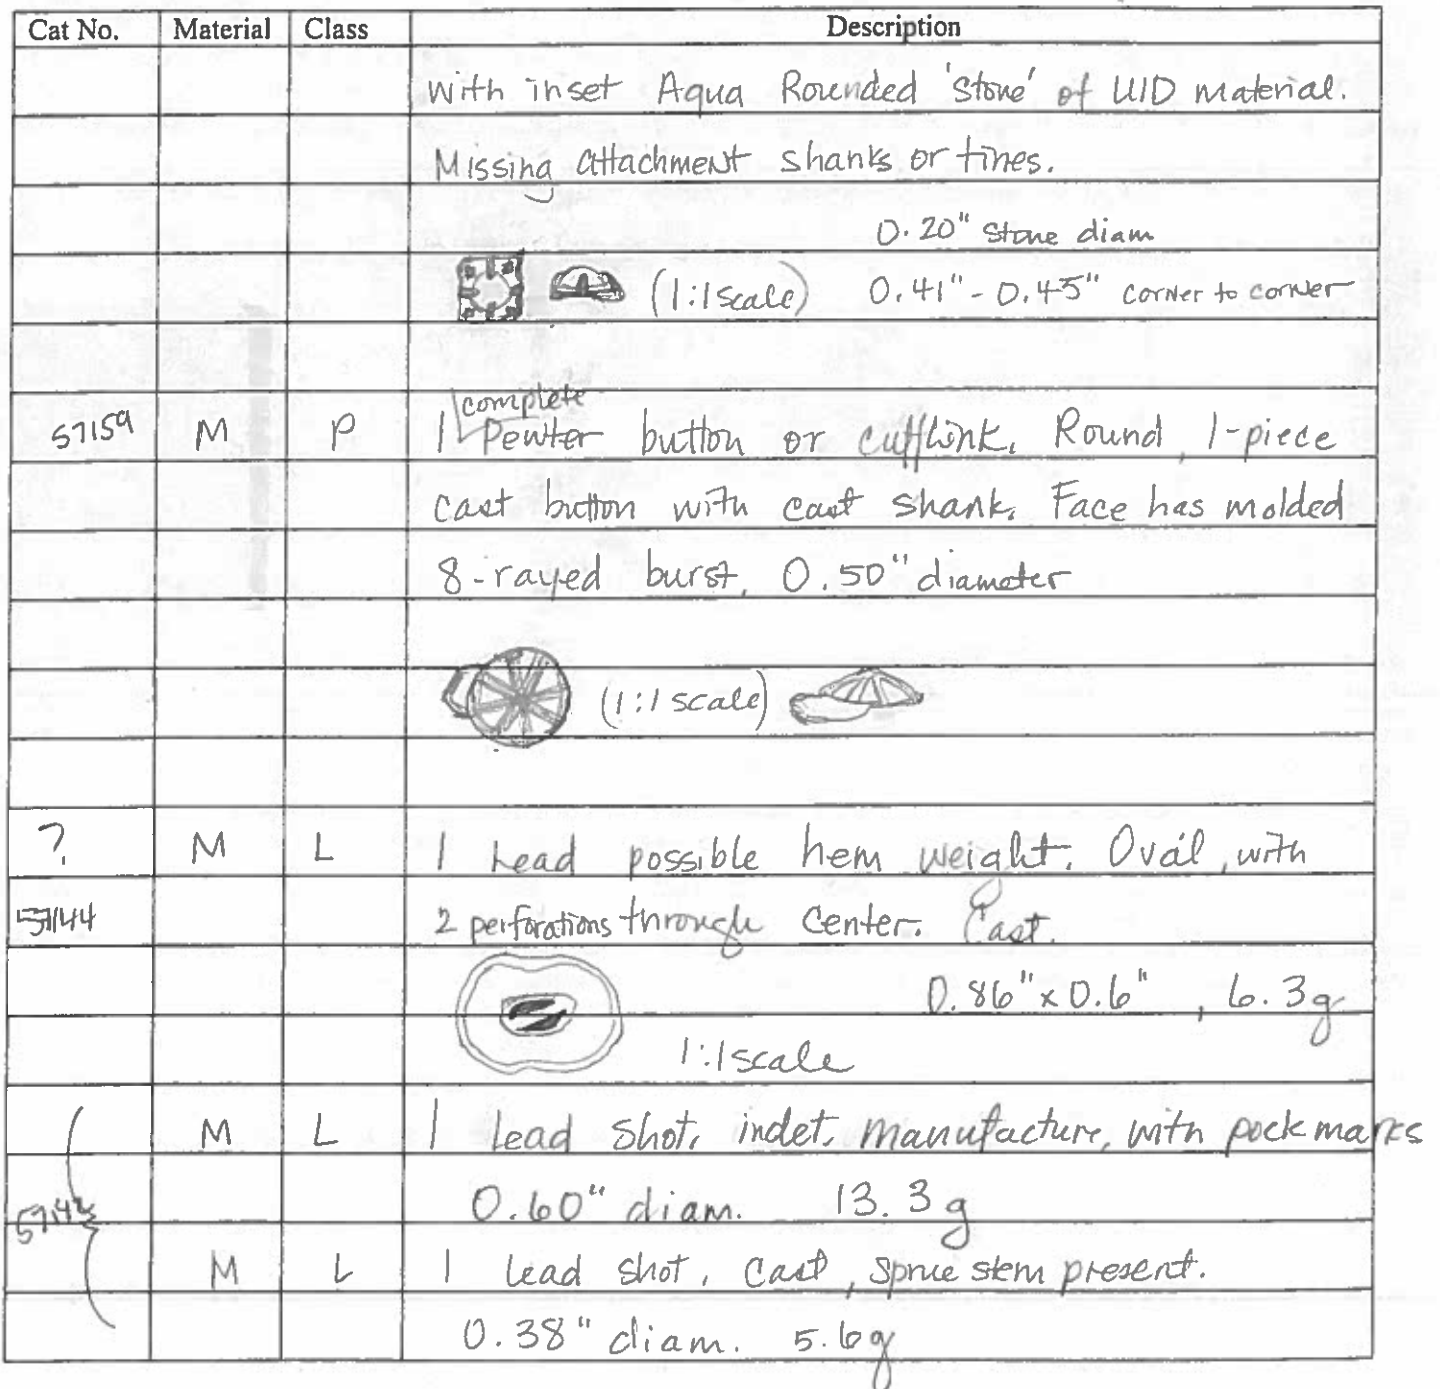 Cat No. Material Class Description
with inset Aqua Rounded 'stone' of UID material.
Missing attachment shanks or tines.
0.20" stone diam
(1:1 scale) 0.41" - 0.45" corner to corner
complete
57159 M P 1 Pewter button or cufflink. Round, 1-piece
cast button with cast shank. Face has molded
8-rayed burst, 0.50" diameter
(1:1 scale)
? M L 1 Lead possible hem weight. Oval, with
57144 2 perforations through center. Cast.
0.86" x 0.6", 6.3g
1:1 scale
M L 1 lead shot, indet. manufacture, with pock marks
0.60" diam. 13.3g
M L 1 lead shot, cast, sprue stem present.
0.38" diam. 5.6g